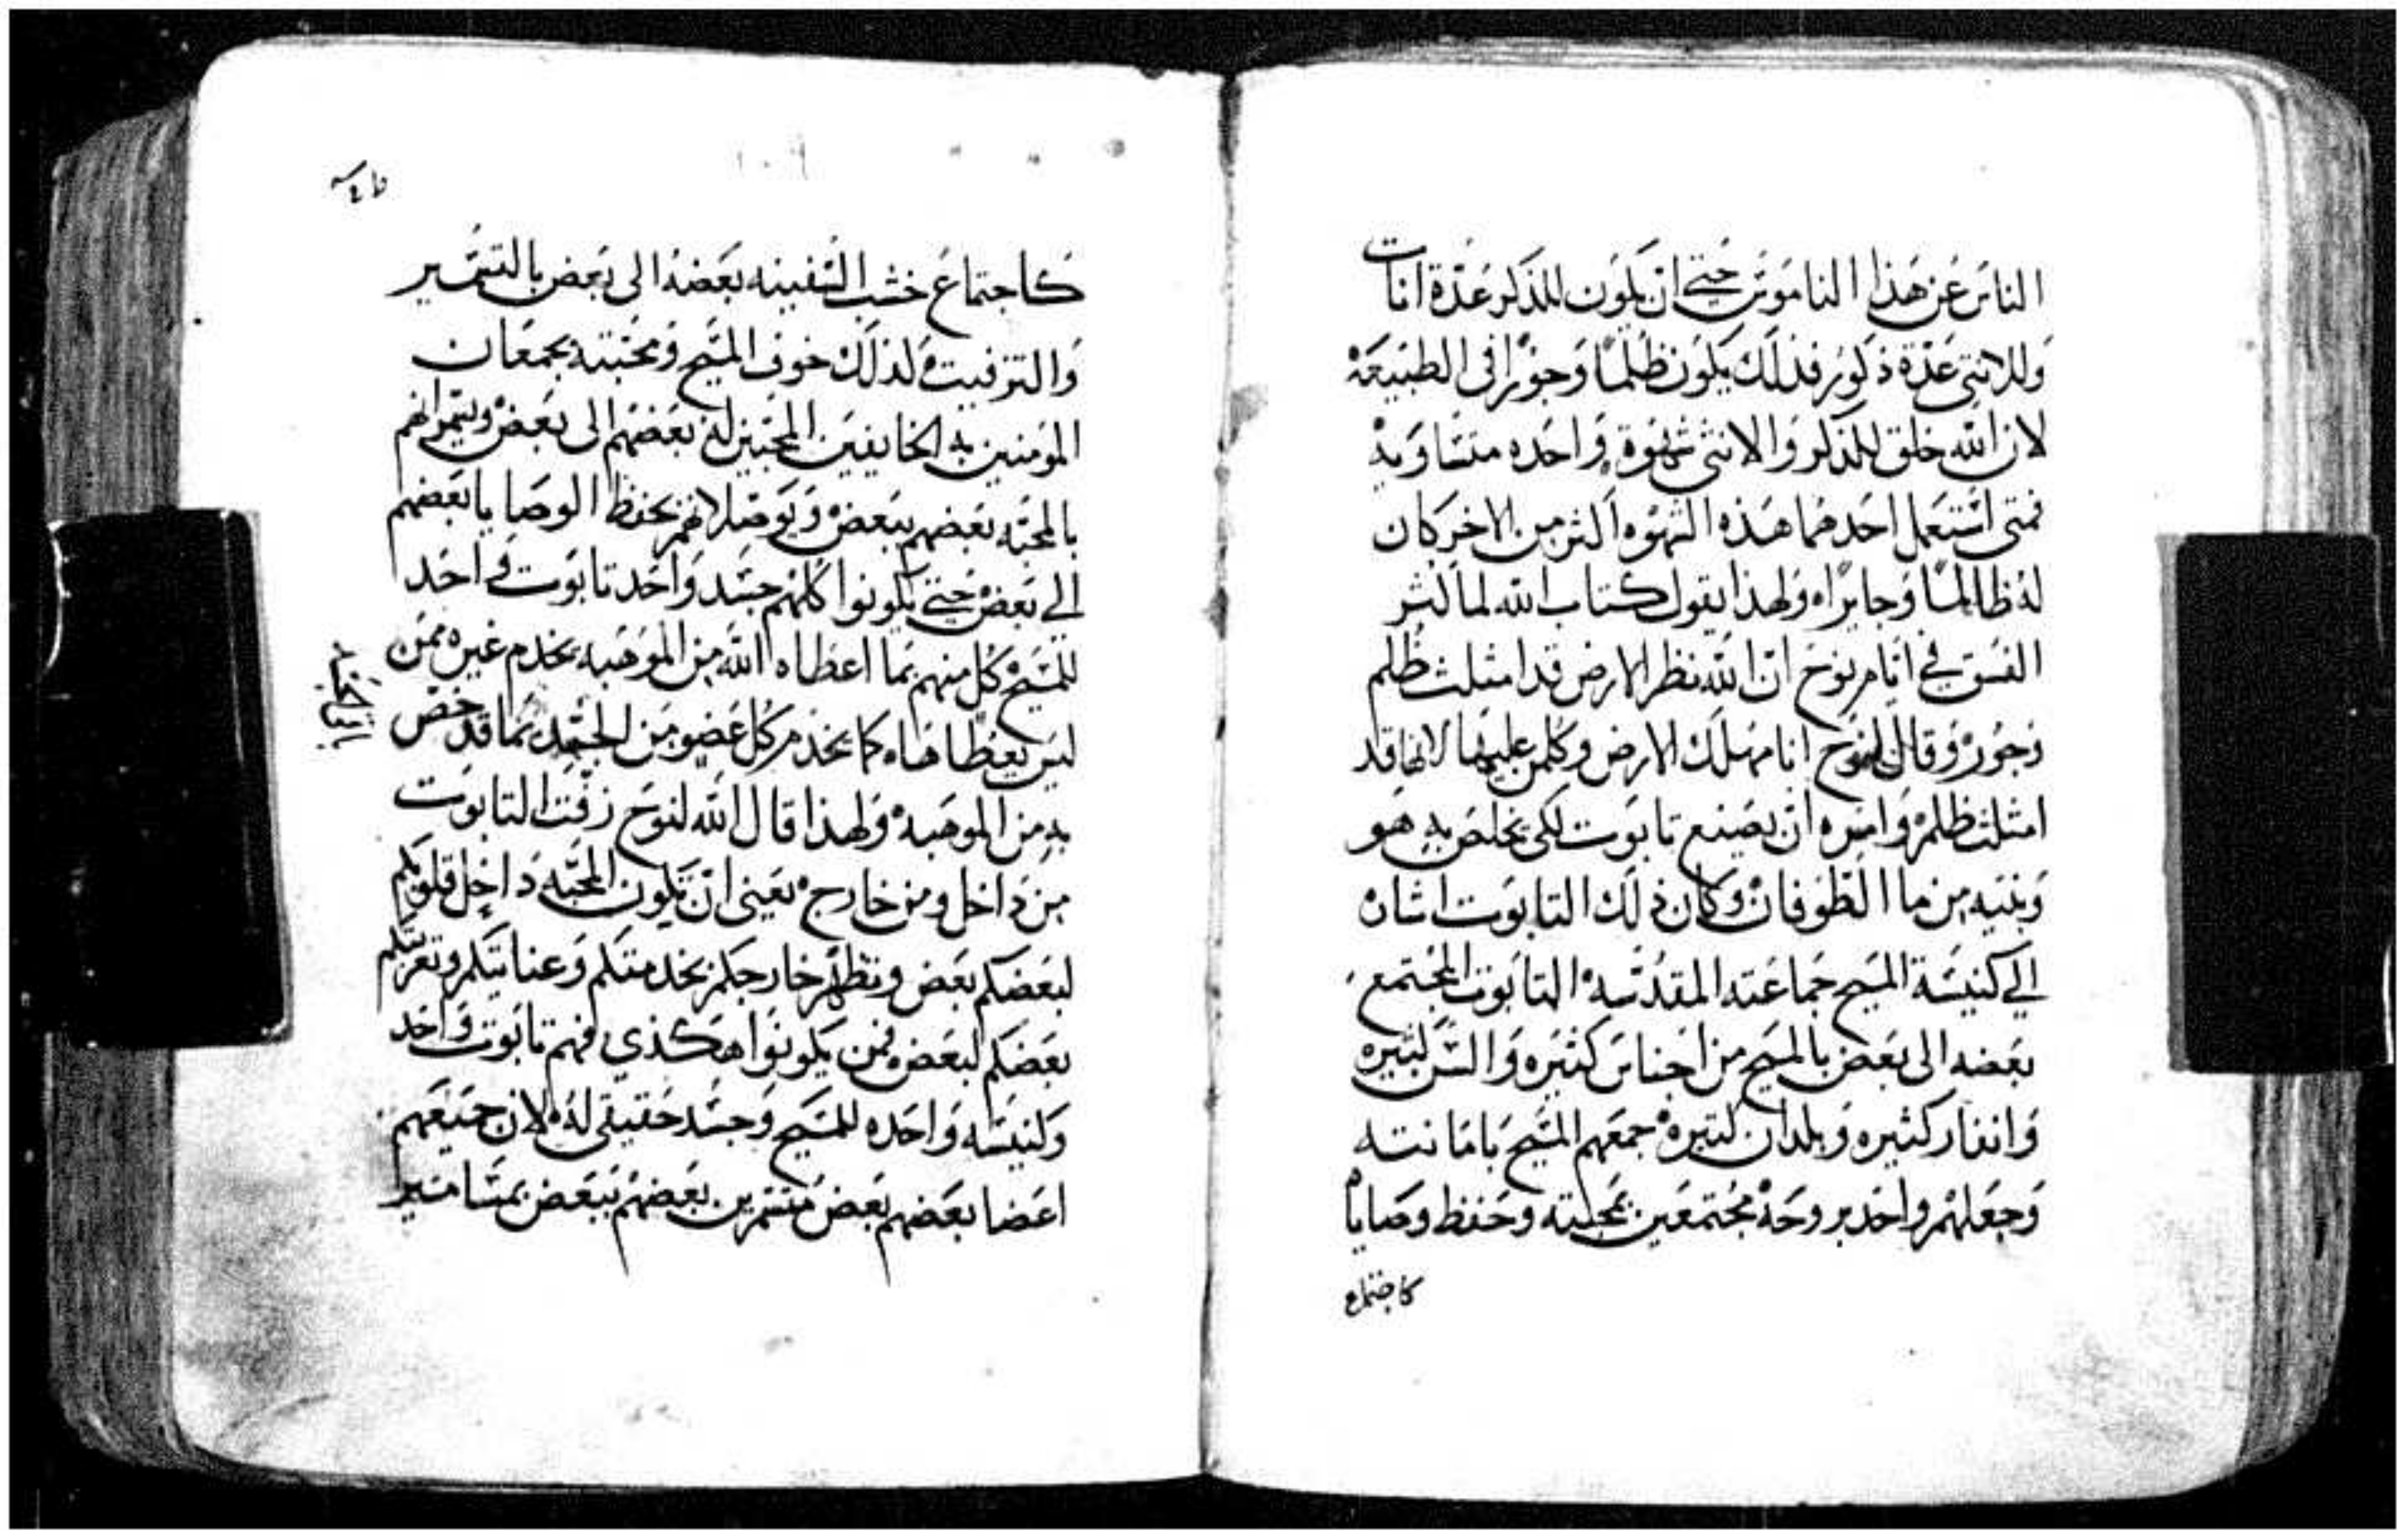 الناس عن هذا الناموس حتي ان يكون للذكر عدة اناث
وللانثي عدة ذكور فذلك يكون ظلمًا وجورًا في الطبيعة
لان الله خلق للذكر والانثي شهوة واحده متساويه
فمتي استعمل احدهما هذه الشهوه اكثر من الاخر كان
له ظالمًا وجايرًا ولهذا يقول كتاب الله لما كثر
الفسق في ايام نوح ان الله نظر الارض قد امتلت ظلم
وجور وقال لنوح انا مهلك الارض وكلمن عليها لانها قد
امتلت ظلم وامره ان يصنع تابوت لكي يخلص به هو
وبنيه من ما الطوفان وكان ذلك التابوت اشاره
الي كنيسة المسيح جماعته المقدسه التابوت المجتمع
بعضه الى بعض بالمسيح من اجناس كثيره والسن كثيره
وانفار كثيره وبلدان كثيره جمعهم المسيح بامانته
وجعلهم واحد بروحه مجتمعين بمحبته وحفظ وصاياه
كاجتماع
كاجتماع خشب السفينه بعضه الى بعض بالتسمير
والتزفيت لذلك خوف المسيح ومحبته يجمعان
المومنين به الخايفين المحبين له بعضهم الى بعض ويسمرانهم
بالمحبه بعضهم ببعض ويوصلانهم بحفظ الوصايا بعضهم
الي بعض حتي يكونوا كلهم جسد واحد تابوت واحد
للمسيح كل منهم بما اعطاه الله من الموهبه يخدم غيره ممن
ليس يعطاها كما يخدم كل عضو من الجسد بما قد خص
به من الموهبه ولهذا قال الله لنوح زفت التابوت
من داخل ومن خارج يعني ان تكون المحبه داخل قلوبكم
لبعضكم بعض وتظهر خارجكم بخدمتكم وعنايتكم وتعزيتكم
بعضكم لبعض فمن يكونوا هكذي فهم تابوت واحد
وكنيسه واحده للمسيح وجسد حقيقي له لان جميعهم
اعضا بعضهم بعض متسمرين بعضهم ببعض بمسامير